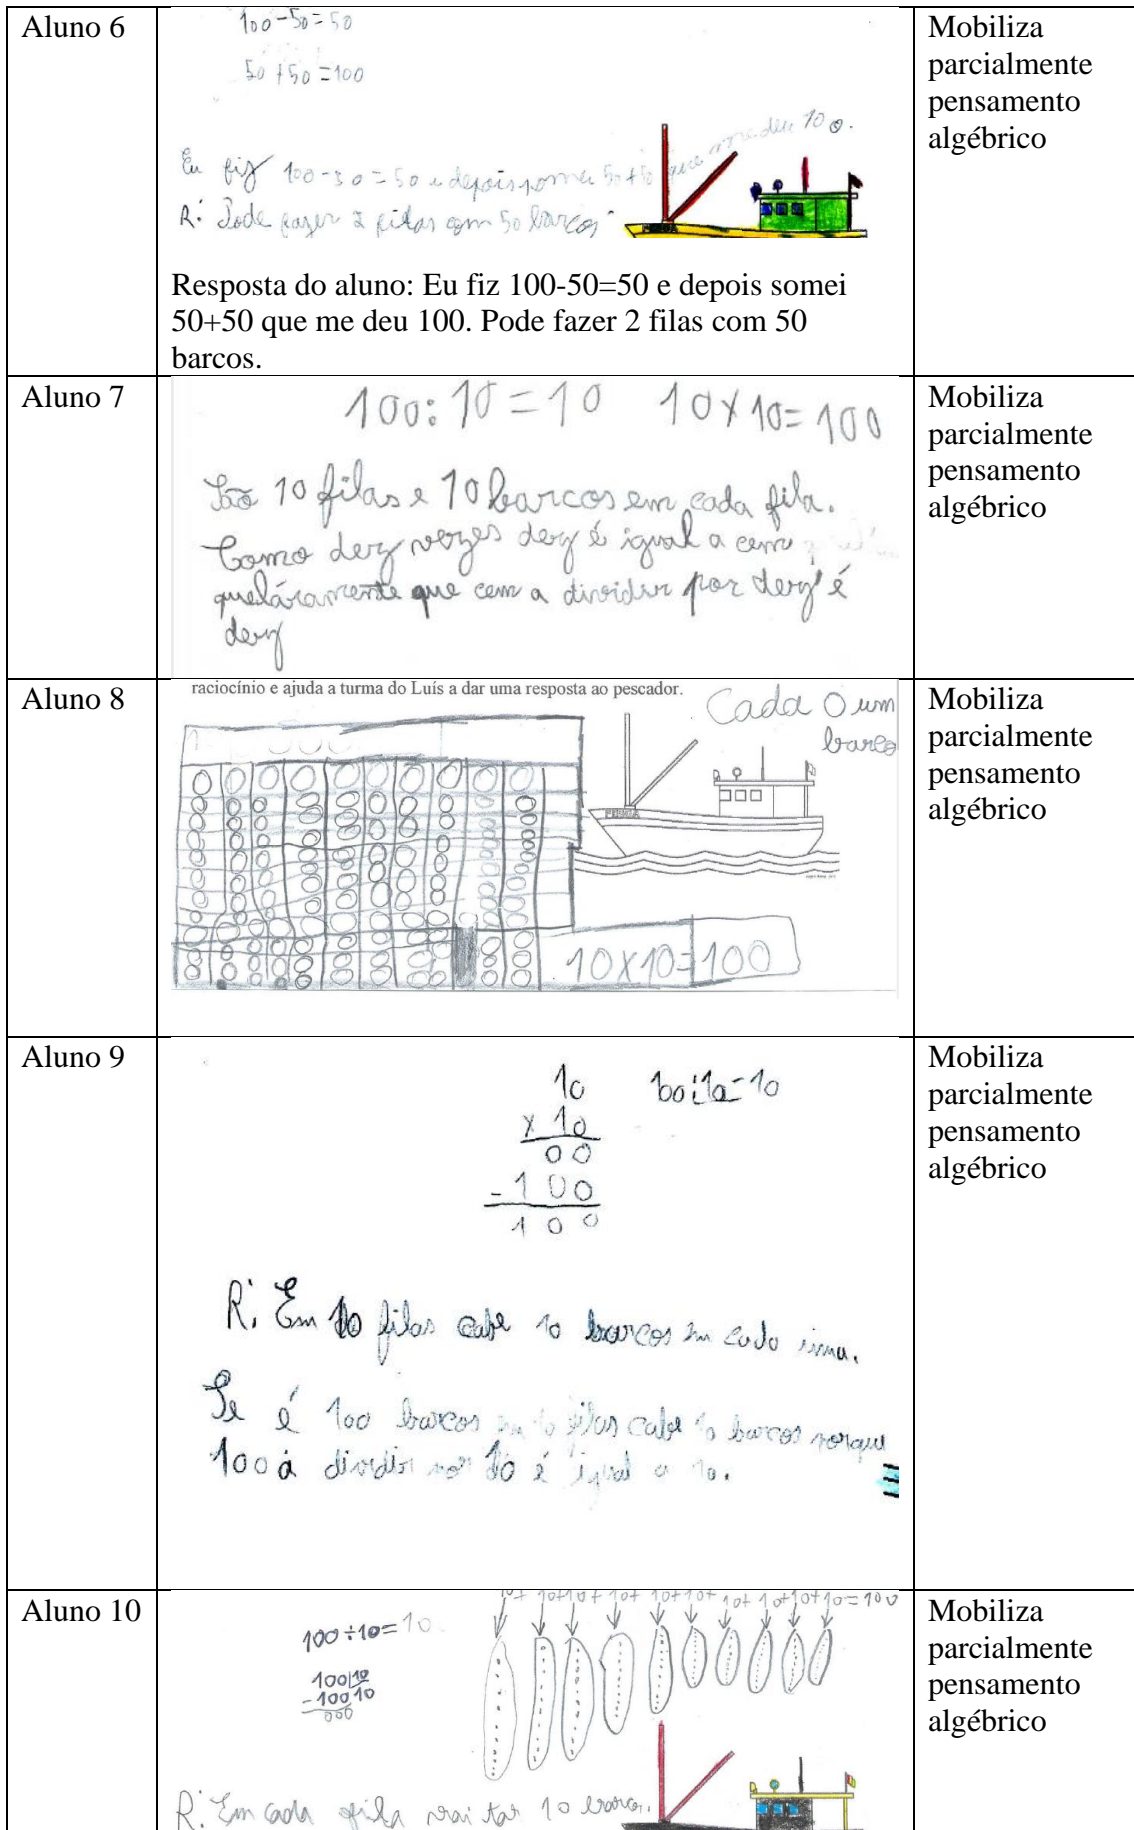 Aluno 6
100-50=50
50+50=100
Eu fiz 100-50=50 e depois somei 50+50 que me deu 100.
R: Pode fazer 2 filas com 50 barcos
Resposta do aluno: Eu fiz 100-50=50 e depois somei
50+50 que me deu 100. Pode fazer 2 filas com 50
barcos.
Mobiliza
parcialmente
pensamento
algébrico
Aluno 7
100:10=10 10x10=100
São 10 filas e 10 barcos em cada fila.
Como dez vezes dez é igual a cem
que cem a dividir por dez é
dez
Mobiliza
parcialmente
pensamento
algébrico
Aluno 8
raciocínio e ajuda a turma do Luís a dar uma resposta ao pescador.
Cada O um
barco
10x10=100
Mobiliza
parcialmente
pensamento
algébrico
Aluno 9
10 100:10=10
x 10
00
-100
100
R: Em 10 filas cabe 10 barcos em cada uma.
Se é 100 barcos em 10 filas cabe 10 barcos porque
100 à dividir por 10 é igual a 10.
Mobiliza
parcialmente
pensamento
algébrico
Aluno 10
10+10+10+10+10+10+10+10+10+10=100
100÷10=10
100|10
-100 10
000
R: Em cada fila vai tar 10 barcos.
Mobiliza
parcialmente
pensamento
algébrico